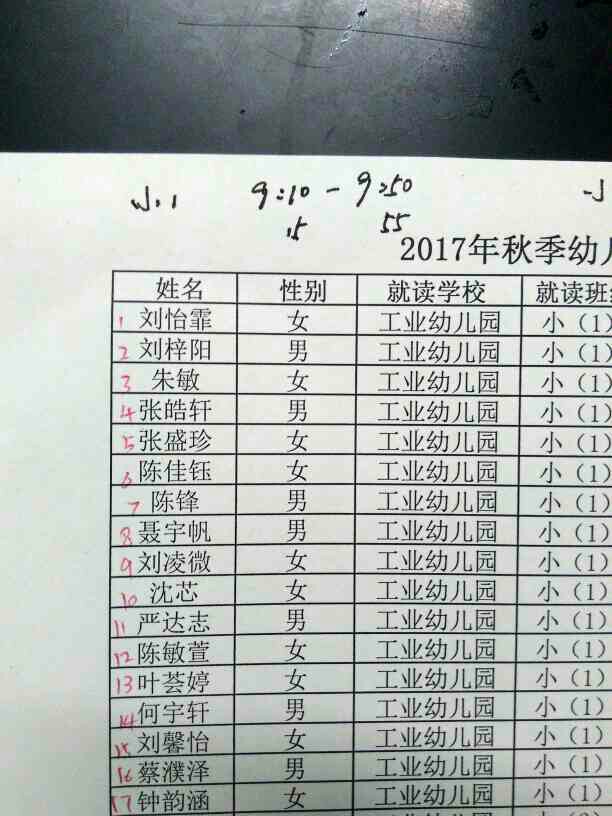 小.1 9:10 - 9:50
15 55
2017年秋季幼儿
姓名 性别 就读学校 就读班级
1 刘怡霏 女 工业幼儿园 小（1）
2 刘梓阳 男 工业幼儿园 小（1）
3 朱敏 女 工业幼儿园 小（1）
4 张皓轩 男 工业幼儿园 小（1）
5 张盛珍 女 工业幼儿园 小（1）
6 陈佳钰 女 工业幼儿园 小（1）
7 陈锋 男 工业幼儿园 小（1）
8 聂宇帆 男 工业幼儿园 小（1）
9 刘凌微 女 工业幼儿园 小（1）
10 沈芯 女 工业幼儿园 小（1）
11 严达志 男 工业幼儿园 小（1）
12 陈敏萱 女 工业幼儿园 小（1）
13 叶荟婷 女 工业幼儿园 小（1）
14 何宇轩 男 工业幼儿园 小（1）
15 刘馨怡 女 工业幼儿园 小（1）
16 蔡濮泽 男 工业幼儿园 小（1）
17 钟韵涵 女 工业幼儿园